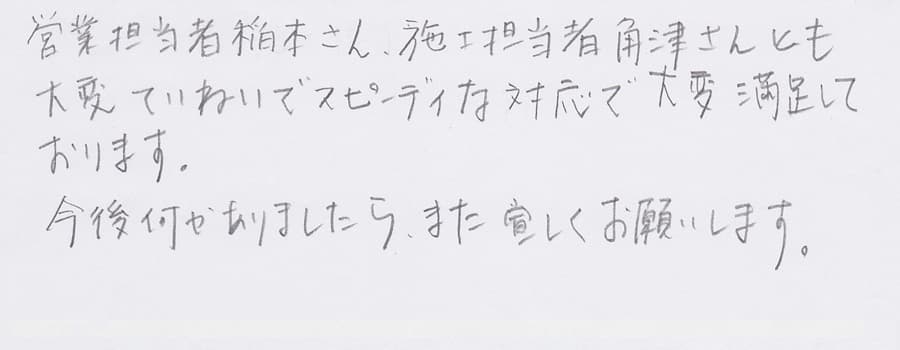 営業担当者稲本さん、施工担当者角津さんとも
大変ていねいでスピーディな対応で大変満足して
おります。
今後何かありましたら、また宜しくお願いします。